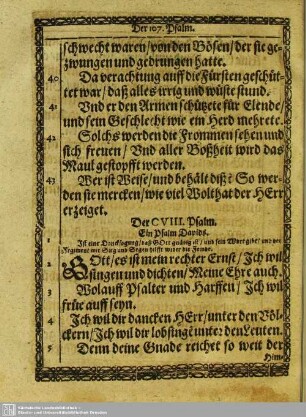 Der 107. Psalm.
schwecht waren/ von den Bösen/ der sie ge-
zwungen und gedrungen hatte.
40 Da verachtung auff die Fürsten geschüt-
tet war/ daß alles irrig und wüste stund.
41 Vnd er den Armen schützete für Elende/
und sein Geschlecht wie ein Herd mehrete.
42 Solchs werden die Frommen sehen und
sich freuen/ Vnd aller Boßheit wird das
Maul gestopfft werden.
43 Wer ist Weise/ und behält diß? So wer-
den sie mercken/ wie viel Wolthat der HErr
erzeiget.
Der CVIII. Psalm.
Ein Psalm Davids.
1 Ist eine Dancksagung/ daß GOtt gnädig ist/ und sein Wort gibt/ und
Regiment mit Sieg und Segen wider die Feinde.
2 GOtt/ es ist mein rechter Ernst/ Ich wil
singen und dichten/ Meine Ehre auch.
3 Wolauff Psalter und Harffen/ Ich wil
früe auff seyn.
4 Ich wil dir dancken HErr/ unter den Völ-
ckern/ Ich wil dir lobsingē unter den Leuten.
5 Denn deine Gnade reichet so weit der
Him-